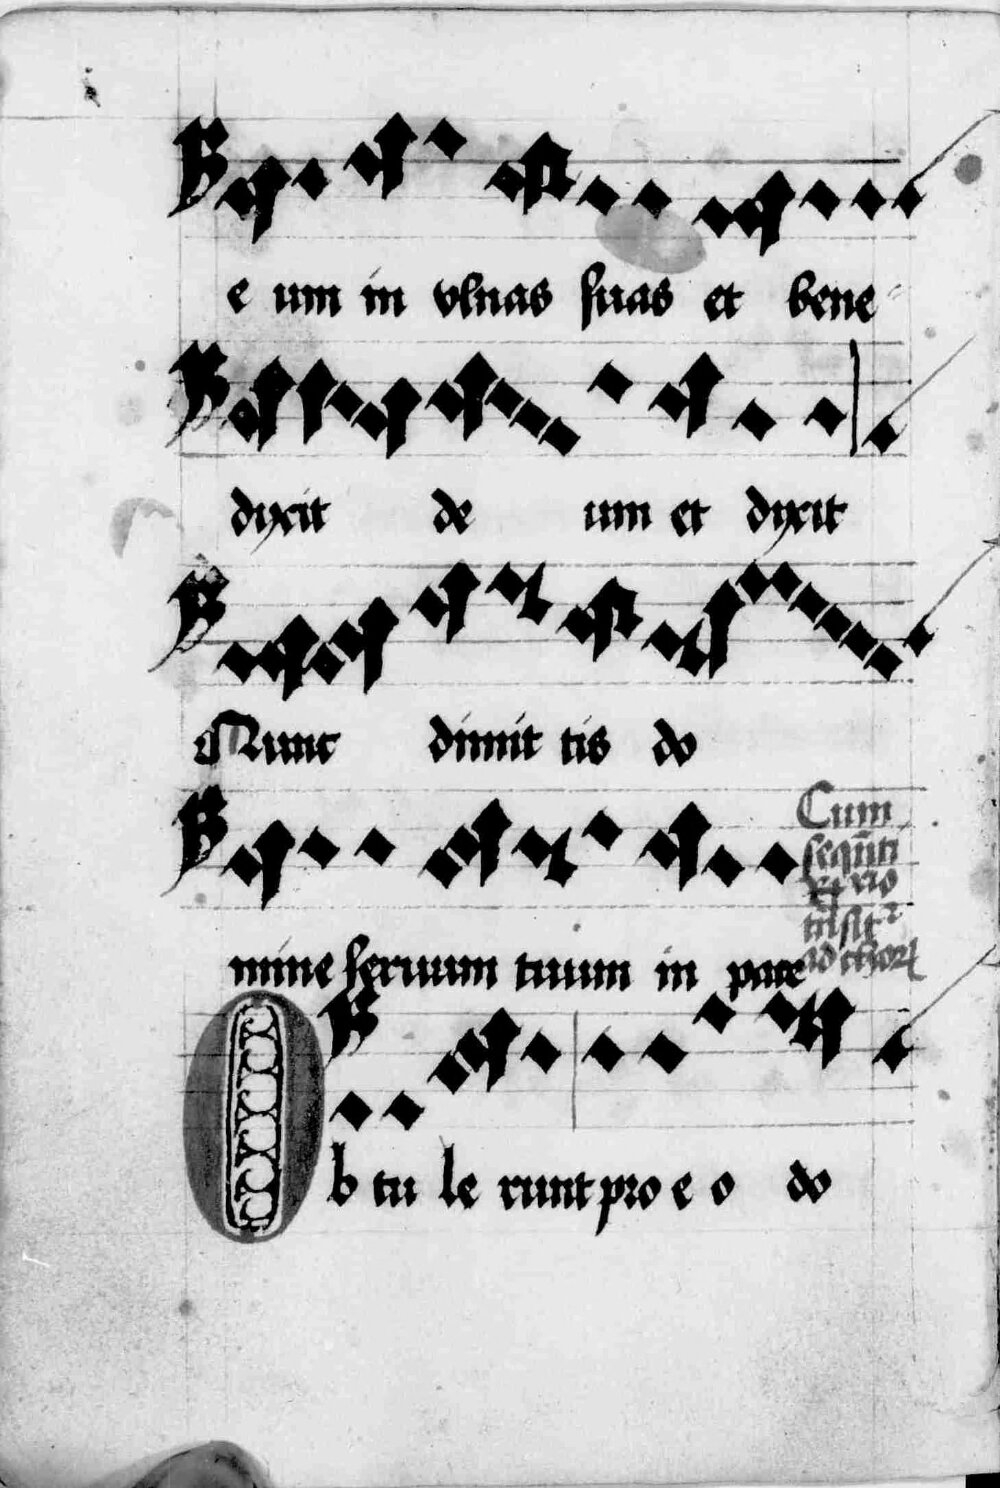 e um in vlnas suas et bene
dixit de um et dixit
Nunc dimit tis do
Cum
mine seruum tuum in pace
Ob tu le runt pro e o do